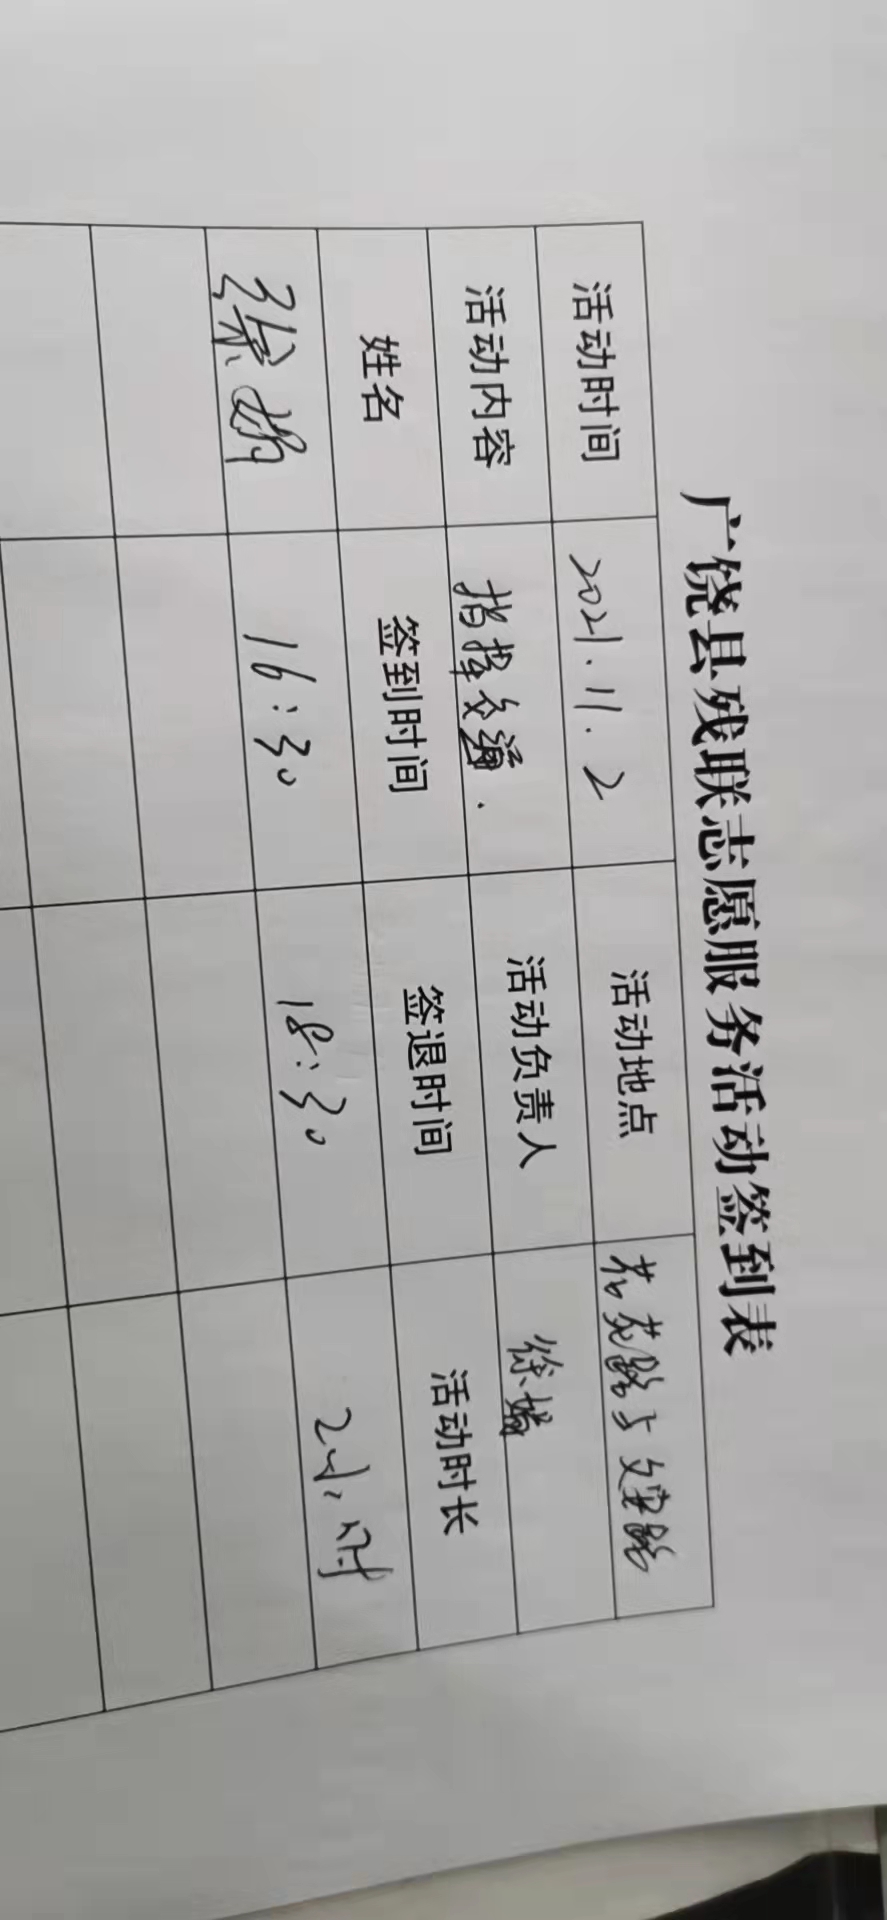 广饶县残联志愿服务活动签到表
活动时间 2021.11.2 活动地点 花苑路与文安路
活动内容 指挥交通. 活动负责人 徐
姓名 签到时间 签退时间 活动时长
16:30 18:30 2小时